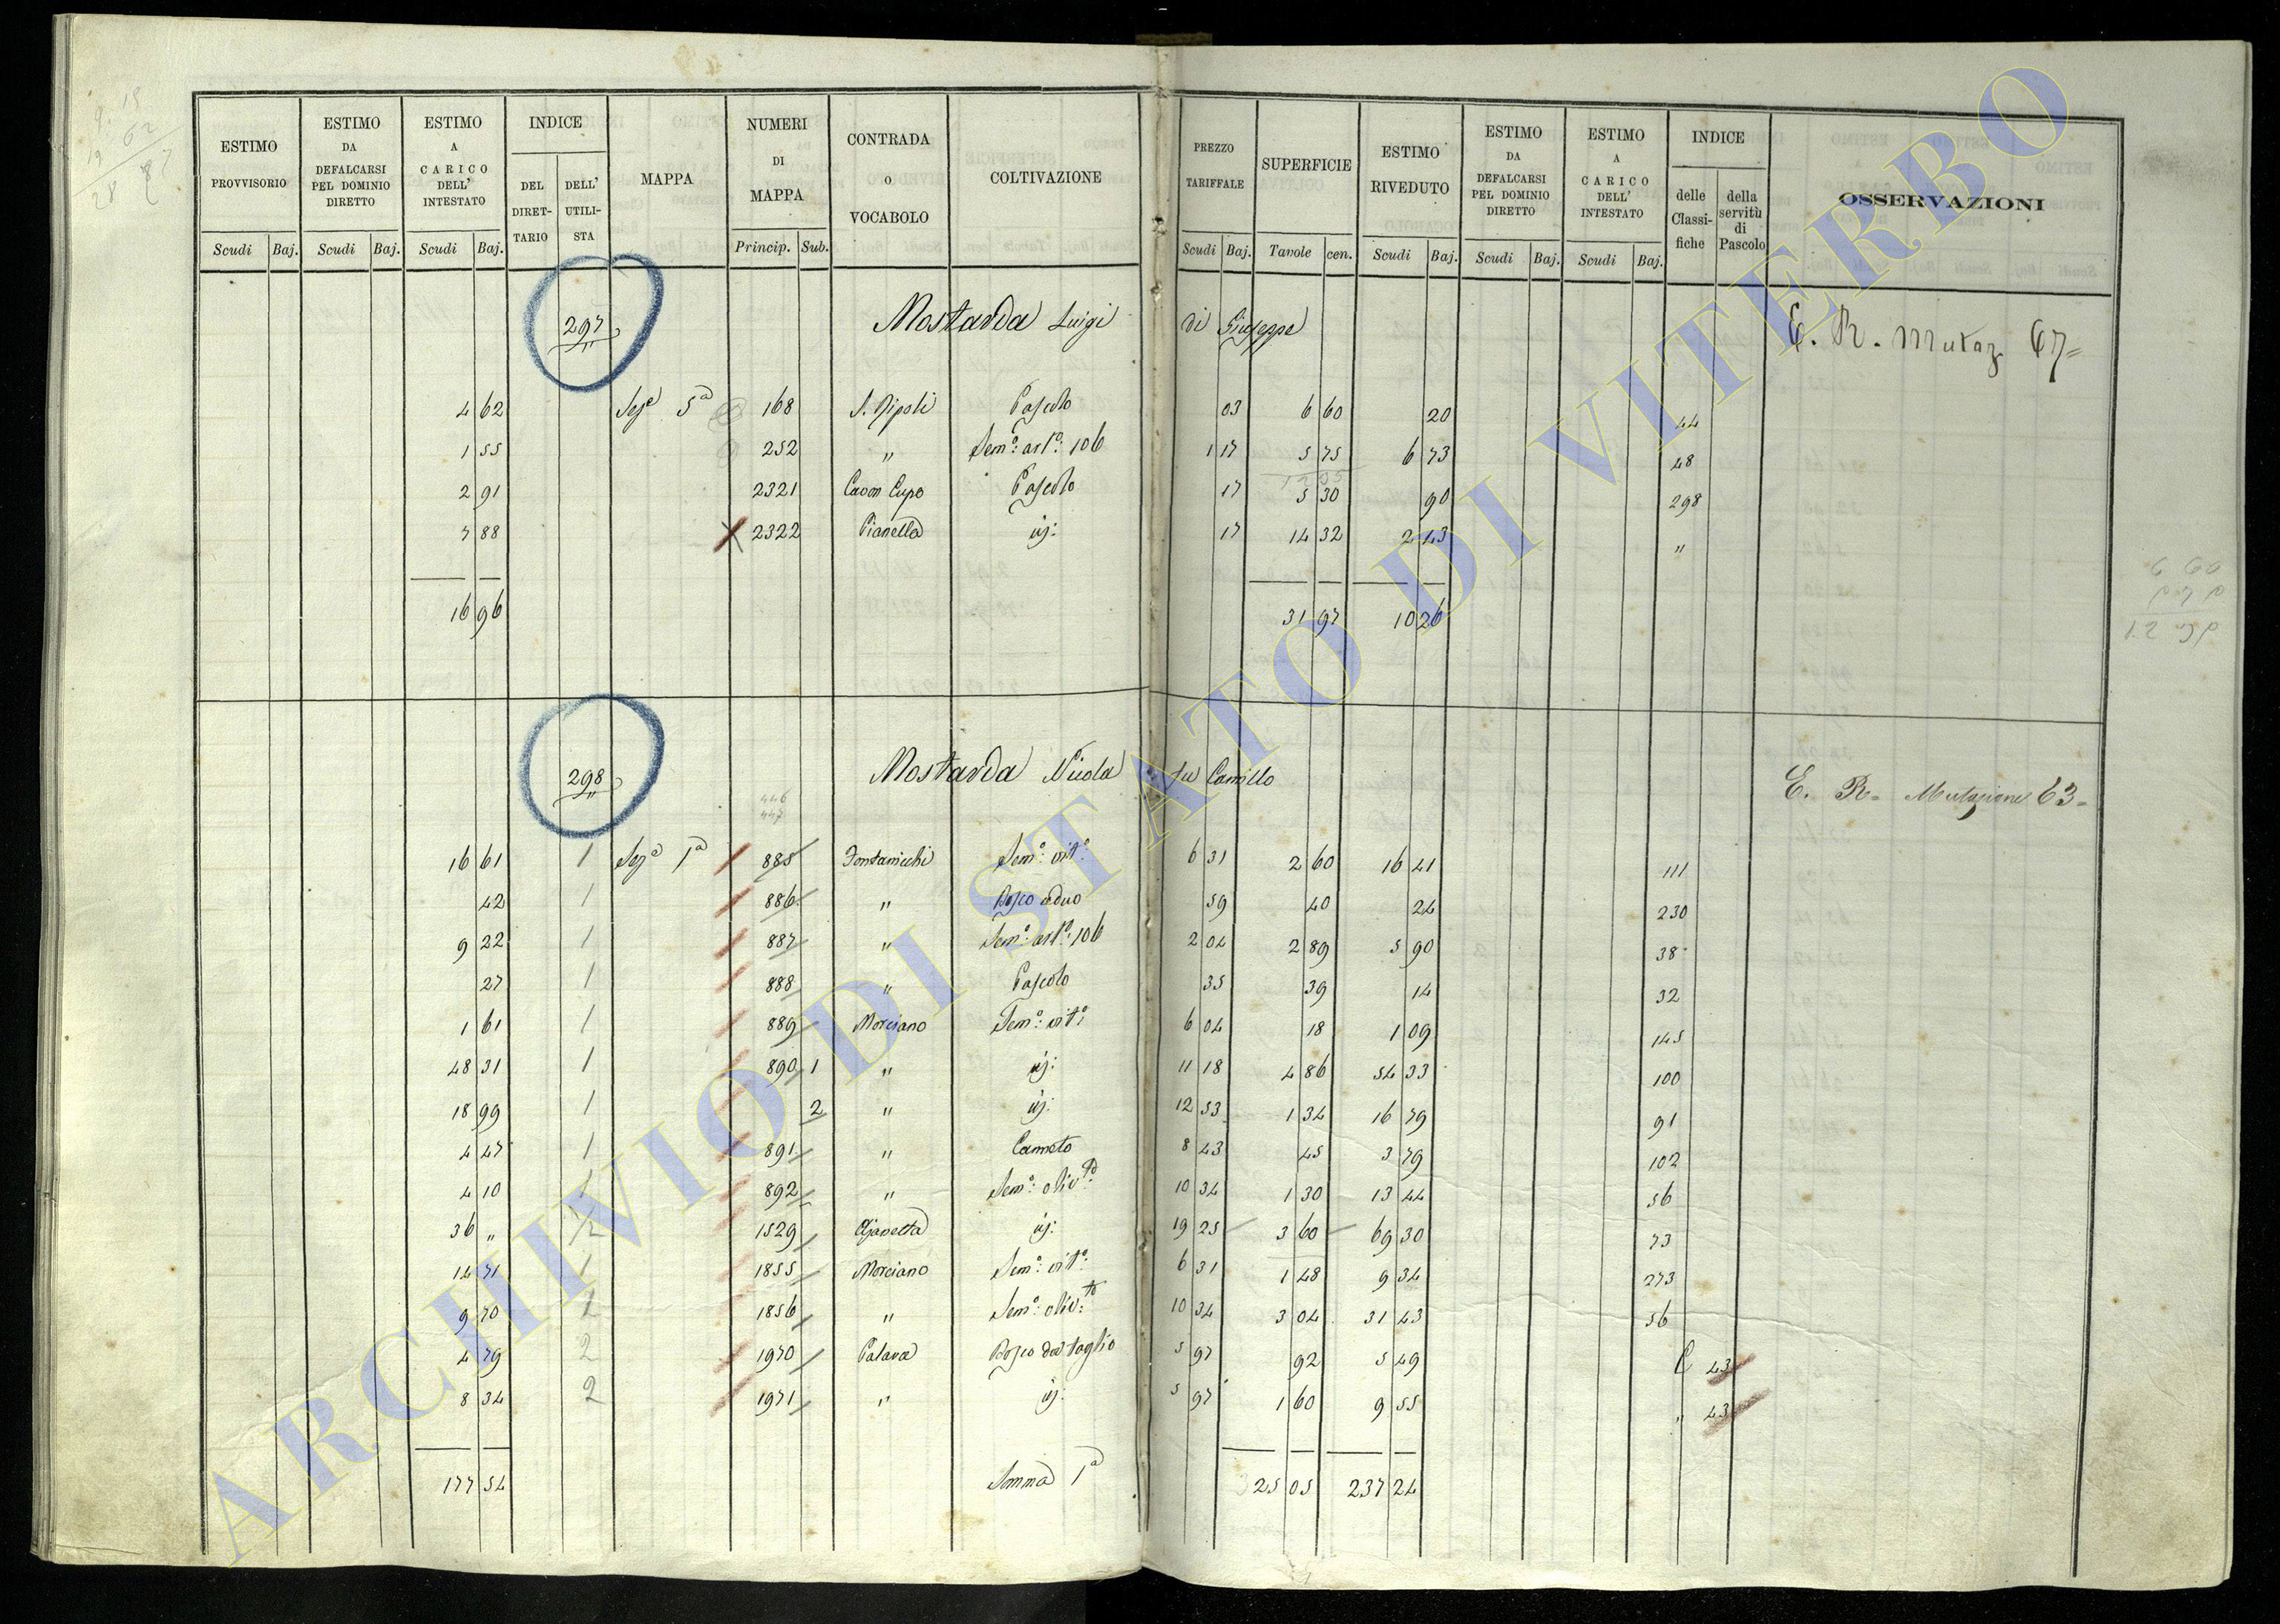 ESTIMO PROVVISORIO | ESTIMO DA DEFALCARSI PEL DOMINIO DIRETTO | ESTIMO A CARICO DELL' INTESTATO | INDICE DEL DIRETTARIO | DELL' UTILISTA | MAPPA | NUMERI DI MAPPA | CONTRADA O VOCABOLO | COLTIVAZIONE | PREZZO TARIFFALE | SUPERFICIE | ESTIMO RIVEDUTO | ESTIMO DA DEFALCARSI PEL DOMINIO DIRETTO | ESTIMO A CARICO DELL' INTESTATO | INDICE delle Classifiche | della servitù di Pascolo | OSSERVAZIONI
Scudi Baj. | Scudi Baj. | Scudi Baj. | Princip. Sub. | Scudi Baj. | Tavole cen. | Scudi Baj. | Scudi Baj. | Scudi Baj.
297 Mostarda Luigi di Giuseppe E. R. Mutaz 67=
4 62 Sez.e 5a 168 S. Ripoli Pascolo 03 6 60 20 44
1 55 252 " Sem.o: art.o: 106 1 17 5 75 6 73 48
2 91 2321 Cupo Pascolo 17 5 30 90 298
7 88 2322 Pianella id: 17 14 32 2 43 "
16 96 31 97 10 26
298 Mostarda Nicola fu Camillo E. R. Mutazione 63=
446
447
16 61 1 Sez.e 1a 885 Fontanicchi Sem.o: vit.o 6 31 2 60 16 41 111
42 1 886 " Bosco ceduo 59 40 24 230
9 22 1 887 " Sem.o: art.o: 106 2 04 2 89 5 90 38
27 1 888 " Pascolo 35 39 14 32
1 61 1 889 Morciano Sem.o: vit.o 6 04 18 1 09 145
48 31 1 890 1 " id: 11 18 4 86 54 33 100
18 99 1 2 " id: 12 53 1 34 16 79 91
4 47 1 891 " Canneto 8 43 45 3 79 102
4 10 1 892 " Sem.o: oliv.to 10 34 1 30 13 44 56
36 " 1529 id: 19 25 3 60 69 30 73
14 71 1 1855 Morciano Sem.o: vit.o 6 31 1 48 9 34 273
9 70 1856 " Sem.o: oliv.to 10 34 3 04 31 43 56
4 79 2 1970 Palara Bosco da taglio 5 97 92 5 49 C 43
8 34 2 1971 " id: 5 97 1 60 9 55 " 43
177 54 Somma 1a 25 05 237 24
ARCHIVIO DI STATO DI VITERBO